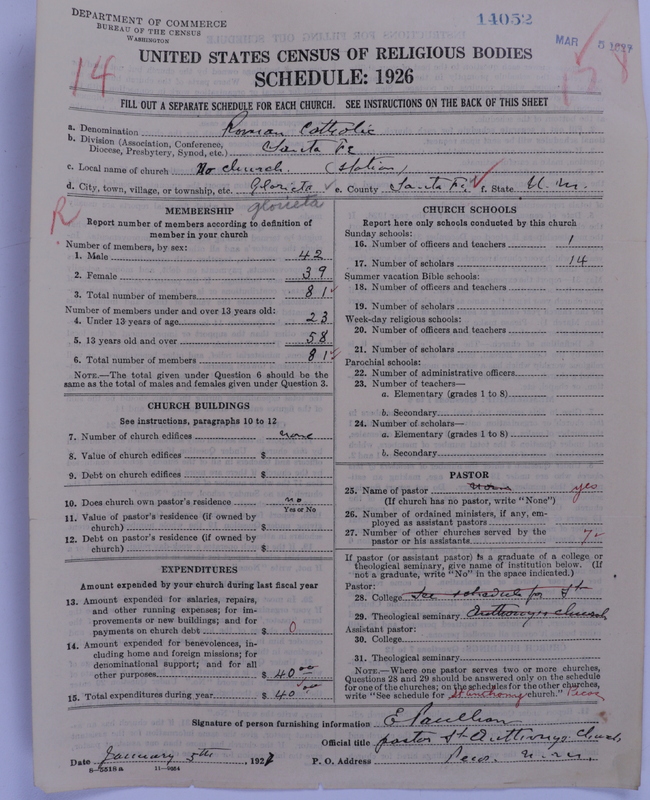 DEPARTMENT OF COMMERCE
BUREAU OF THE CENSUS
WASHINGTON
14052
MAR 5 1927
14
UNITED STATES CENSUS OF RELIGIOUS BODIES
SCHEDULE: 1926
FILL OUT A SEPARATE SCHEDULE FOR EACH CHURCH. SEE INSTRUCTIONS ON THE BACK OF THIS SHEET
a. Denomination Roman Catholic
b. Division (Association, Conference, Diocese, Presbytery, Synod, etc.) Santa Fe
c. Local name of church No church. (station)
d. City, town, village, or township, etc. Glorieta e. County Santa Fe f. State N. M.
glorieta
R
MEMBERSHIP
Report number of members according to definition of member in your church
Number of members, by sex:
1. Male 42
2. Female 39
3. Total number of members 81
Number of members under and over 13 years old:
4. Under 13 years of age 23
5. 13 years old and over 58
6. Total number of members 81
NOTE.—The total given under Question 6 should be the same as the total of males and females given under Question 3.
CHURCH BUILDINGS
See instructions, paragraphs 10 to 12
7. Number of church edifices none
8. Value of church edifices $
9. Debt on church edifices $
10. Does church own pastor's residence no
Yes or No
11. Value of pastor's residence (if owned by church) $
12. Debt on pastor's residence (if owned by church) $
EXPENDITURES
Amount expended by your church during last fiscal year
13. Amount expended for salaries, repairs, and other running expenses; for improvements or new buildings; and for payments on church debt $ 0
14. Amount expended for benevolences, including home and foreign missions; for denominational support; and for all other purposes $ 40 00
15. Total expenditures during year $ 40 00
CHURCH SCHOOLS
Report here only schools conducted by this church
Sunday schools:
16. Number of officers and teachers 1
17. Number of scholars 14
Summer vacation Bible schools:
18. Number of officers and teachers
19. Number of scholars
Week-day religious schools:
20. Number of officers and teachers
21. Number of scholars
Parochial schools:
22. Number of administrative officers
23. Number of teachers—
a. Elementary (grades 1 to 8)
b. Secondary
24. Number of scholars—
a. Elementary (grades 1 to 8)
b. Secondary
PASTOR
25. Name of pastor None yes
(If church has no pastor, write "None")
26. Number of ordained ministers, if any, employed as assistant pastors
27. Number of other churches served by the pastor or his assistants
If pastor (or assistant pastor) is a graduate of a college or theological seminary, give name of institution below. (If not a graduate, write "No" in the space indicated.)
Pastor:
28. College See schedule for St
29. Theological seminary Anthonys church
Assistant pastor:
30. College
31. Theological seminary
NOTE.—Where one pastor serves two or more churches, Questions 28 and 29 should be answered only on the schedule for one of the churches; on the schedules for the other churches, write "See schedule for St Anthony church." Pecos
Signature of person furnishing information E Paulhan
Official title pastor St Anthonys Church
Date January 5th 1927 P. O. Address Pecos. N. M.
8-5518a 11-9054